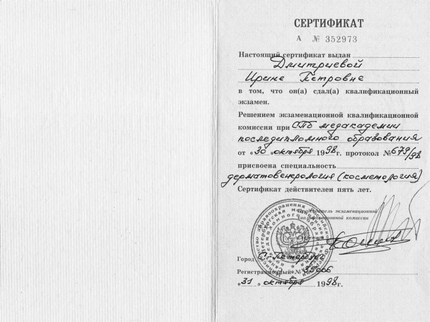 СЕРТИФИКАТ
А № 352973
Настоящий сертификат выдан
Дмитриевой
Ирине Петровне
в том, что он(а) сдал(а) квалификационный
экзамен.
Решением экзаменационной квалификационной
комиссии при СПб медакадемии
последипломного образования
от «30 октября 1998г. протокол № 679/98
присвоена специальность
дерматовенерология (косметология)
Сертификат действителен пять лет.
Председатель экзаменационной
квалификационной комиссии
Город С-Петербург
Регистрационный №
«31 октября 1998г.